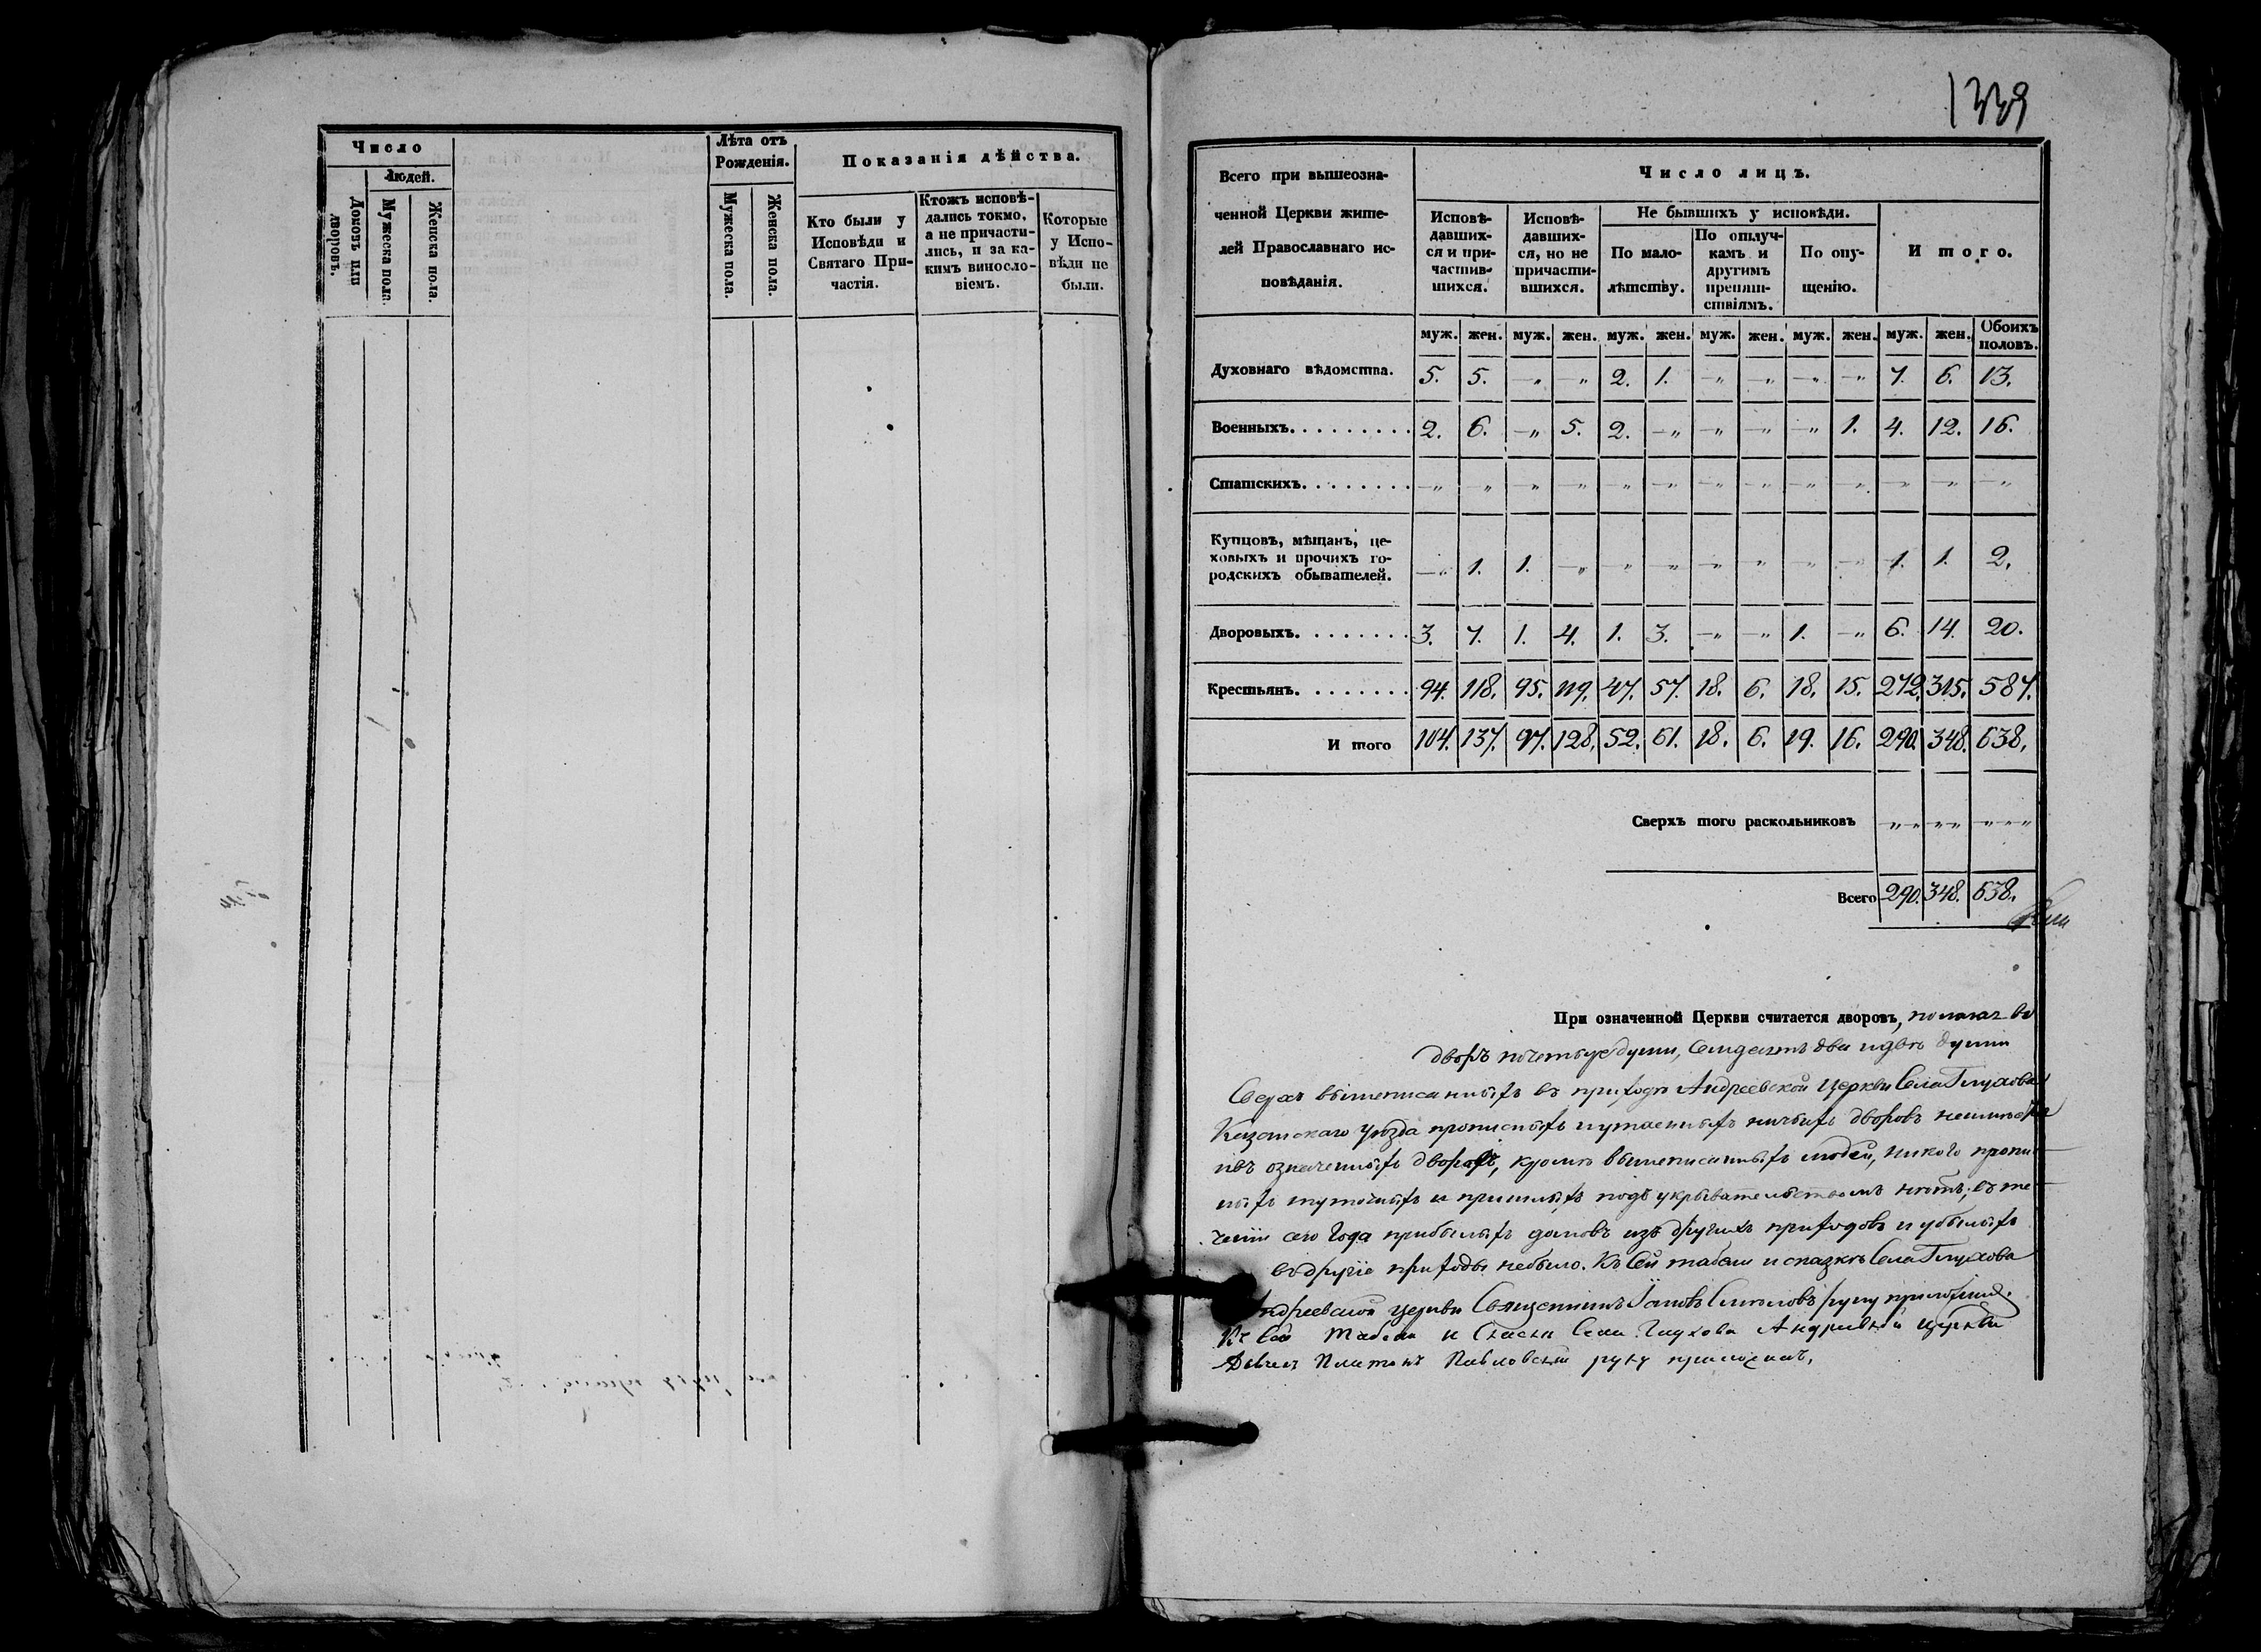 Число
Людей.
Домовъ или дворовъ.
Мужеска пола.
Женска пола.
Лѣта отъ
Рожденія.
Мужеска пола.
Женска пола.
Показанія дѣйства.
Кто были у
Исповѣди и
Святаго При-
частія.
Ктожъ исповѣ-
дались токмо,
а не причасти-
лись, и за ка-
кимъ винносло-
віемъ.
Которые
у Испо-
вѣди не
были.
1339
Всего при вышеозна-
ченной Церкви жите-
лей Православнаго ис-
повѣданія.
Число лицъ.
Исповѣ-
давших-
ся и при-
частив-
шихся.
Исповѣ-
давших-
ся, но не
причасти-
вшихся.
Не бывшихъ у исповѣди.
По мало-
лѣтству.
По отлуч-
камъ и
другимъ
препят-
ствіямъ.
По опу-
щенію.
Итого.
муж. жен. муж. жен. муж. жен. муж. жен. муж. жен. муж. жен. Обоихъ половъ.
Духовнаго вѣдомства. 5. 5. —„ —„ 2. 1. —„ —„ —„ —„ 7. 6. 13.
Военныхъ. 2. 6. —„ 5. 2. —„ —„ —„ —„ 1. 4. 12. 16.
Статскихъ. —„ —„ —„ —„ —„ —„ —„ —„ —„ —„ —„ —„ —„
Купцовъ, мѣщанъ, це-
ховыхъ и прочихъ го-
родскихъ обывателей. —„ 1. 1. —„ —„ —„ —„ —„ —„ —„ 1. 1. 2.
Дворовыхъ. 3. 7. 1. 4. 1. 3. —„ —„ 1. —„ 6. 14. 20.
Крестьянъ. 94. 118. 95. 119. 47. 57. 18. 6. 18. 15. 272. 315. 587.
Итого 104. 137. 97. 128. 52. 61. 18. 6. 19. 16. 290. 348. 638.
Сверхъ того раскольниковъ —„ —„ —„
Всего 290. 348. 638.
При означенной Церкви считается дворовъ, полагая во
дворъ по четыре души, семдесятъ два и двѣ души
Сверхъ вышеписанныхъ въ приходѣ Андреевской Церкви Села Глухова
Казанскаго Уѣзда прописныхъ и утаенныхъ ничьихъ дворовъ
въ означенныхъ дворахъ, кромѣ вышеписанныхъ людей, никого пропис-
ныхъ и пришлыхъ подъ укрывательствомъ нѣтъ; въ те-
ченіи сего Года прибылыхъ домовъ изъ другихъ приходовъ и убылыхъ
въ другіе приходы небыло. Къ Сей табели и сказкѣ Села Глухова
Андреевской церкви Священникъ руку приложилъ.
Къ Сей Табели и Скаски Села Глухова Андреевской церкви
Дьячекъ Платонъ Павловскій руку приложилъ,